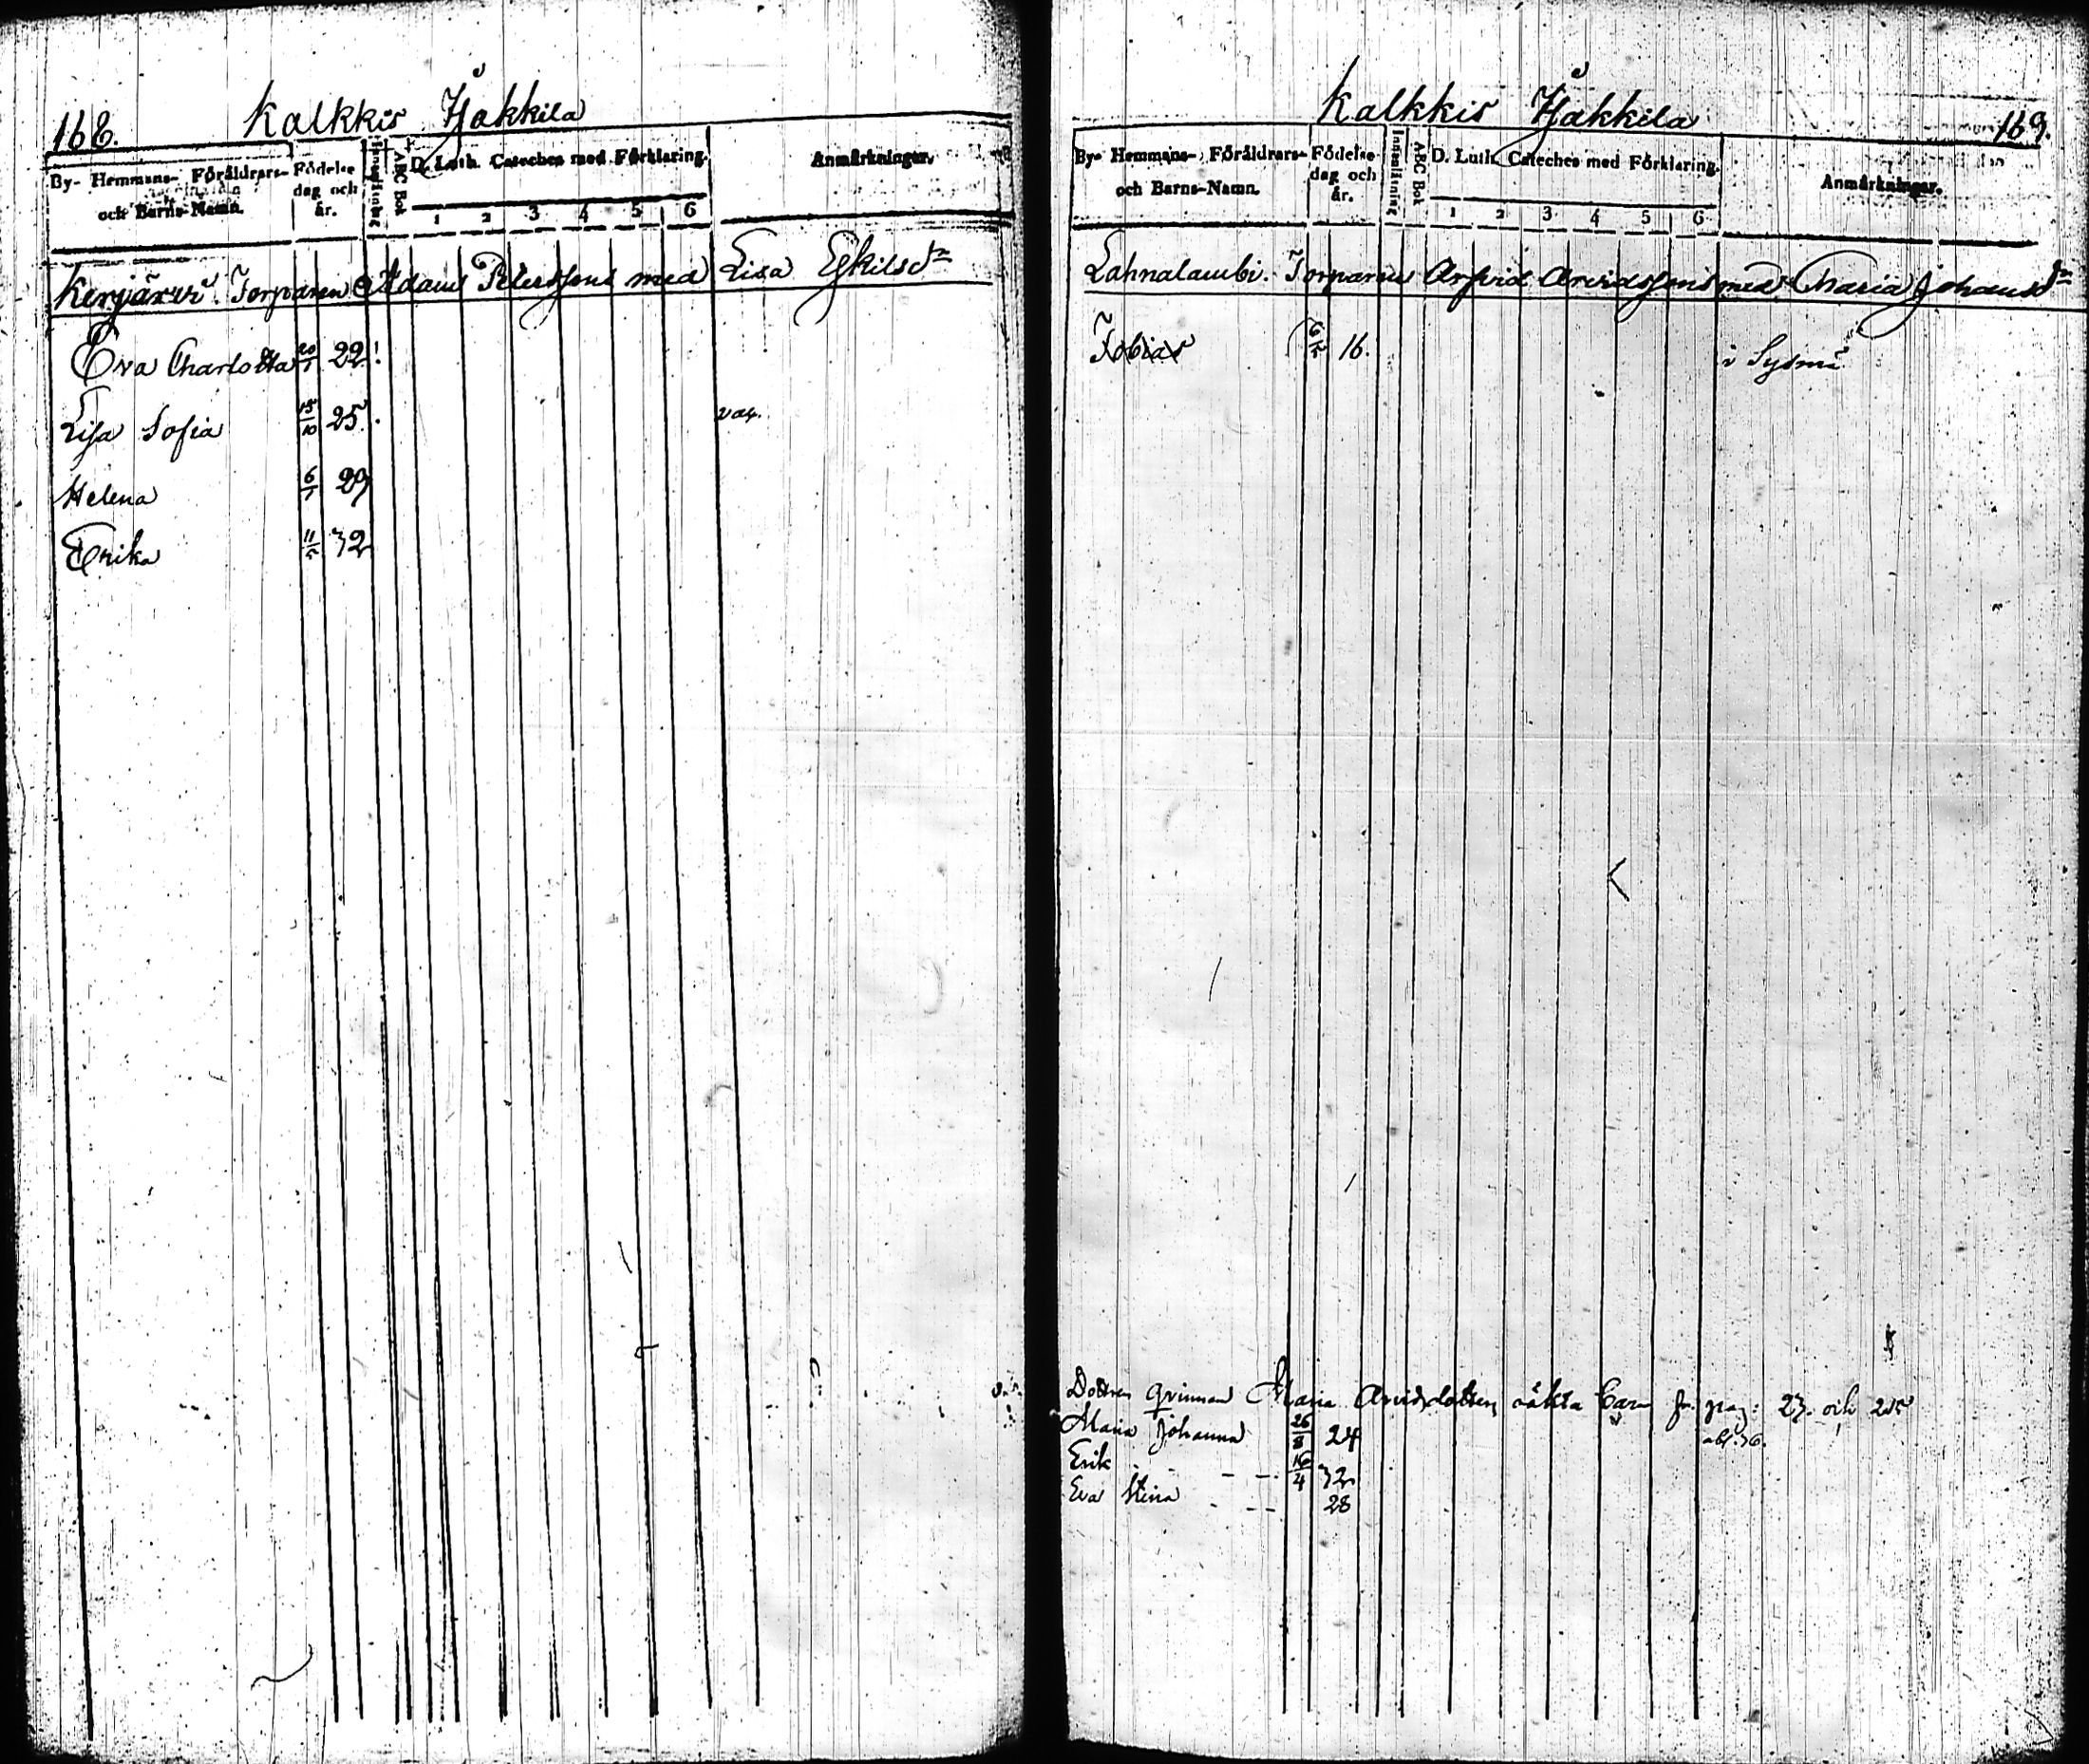 168.
Kalkkis Hakkila
By- Hemmans- Föräldrars- och Barns-Namn.
Födelse dag och år.
Innanläsning
ABC Bok
D. Luth. Cateches med Förklaring.
1 2 3 4 5 6
Anmärkningar.
Kerjärvi Torparen Adam Peterssons med Lisa Eskilsdr
Eva Charlotta 20/1 22 !
Lisa Sofia 15/10 25 . vac.
Helena 6/1 29
Erika 11/5 32
Kalkkis Hakkila
169.
By- Hemmans- Föräldrars- och Barns-Namn.
Födelse dag och år.
Innanläsning
ABC Bok
D. Luth. Cateches med Förklaring.
1 2 3 4 5 6
Anmärkningar.
Lahnalambi. Torparen Arfvid Arvidssons med Maria Johansdr
Tobias 6/5 16. i Sysmä
Dottren qvinnan Maria Arvidsdotters oäkta barn fr. pag: 27. och
Maria Johanna 26/8 24
Erik - - - - 16/4 32
Eva Stina - - - 28